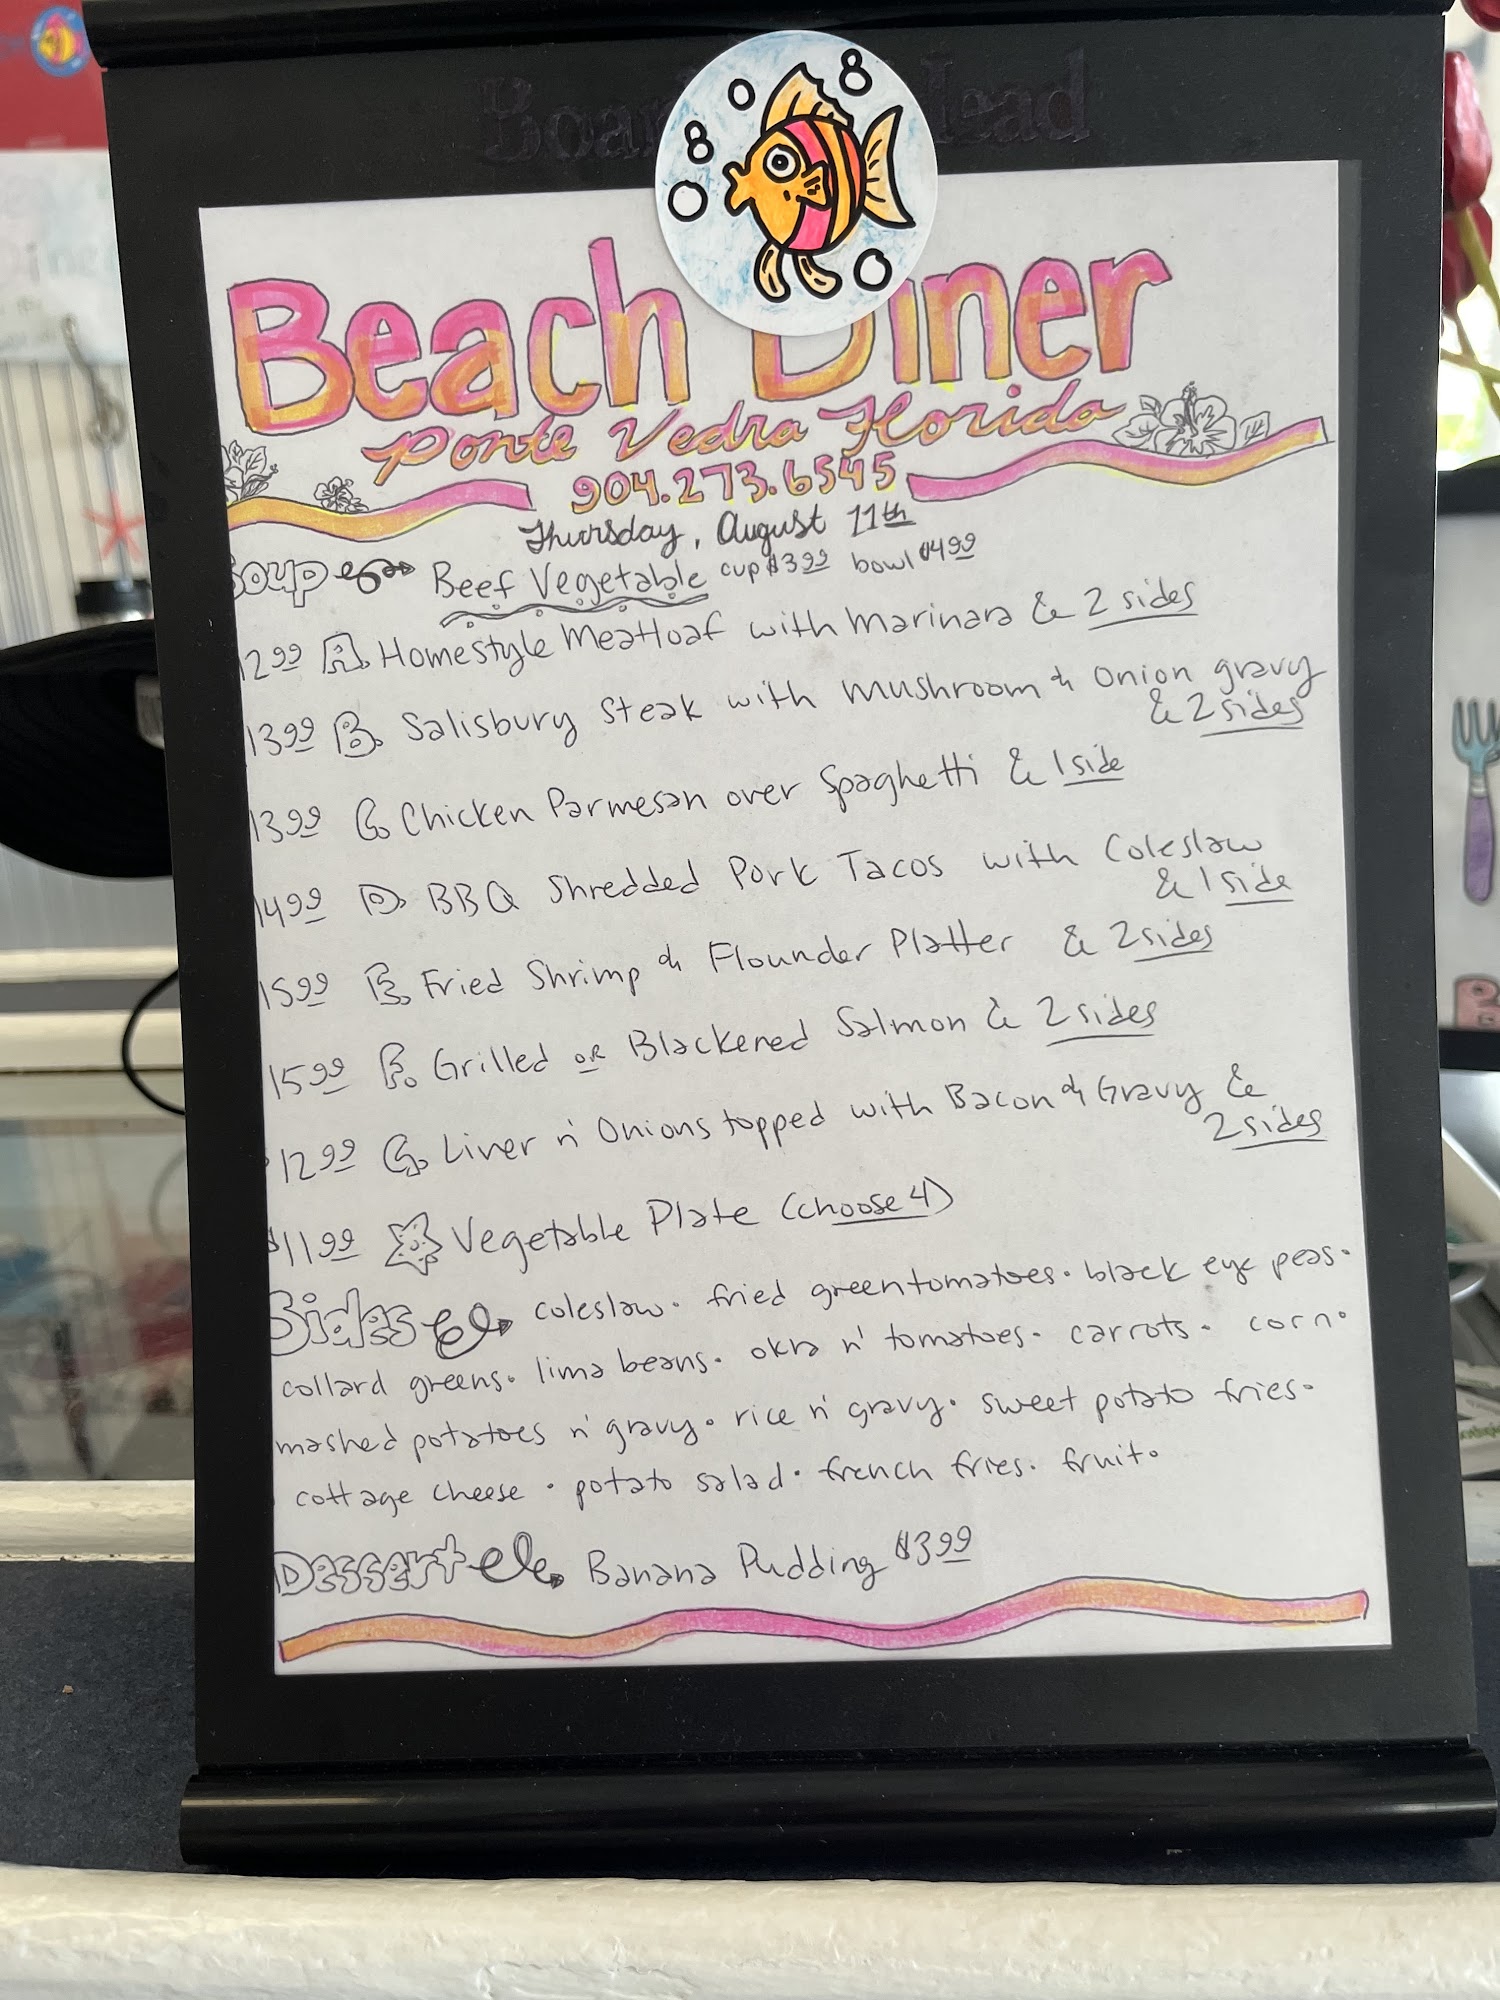 Beach Diner
Ponte Vedra Florida
904.273.6545
Thursday, August 11th
Soup Beef Vegetable cup $3.99 bowl $4.99
12.99 A. Homestyle Meatloaf with Marinara & 2 sides
13.99 B. Salisbury Steak with Mushroom & Onion gravy
& 2 sides
13.99 C. Chicken Parmesan over Spaghetti & 1 side
14.99 D. BBQ Shredded Pork Tacos with Coleslaw
& 1 side
15.99 E. Fried Shrimp & Flounder Platter & 2 sides
15.99 F. Grilled or Blackened Salmon & 2 sides
12.99 G. Liver n' Onions topped with Bacon & Gravy &
2 sides
$11.99 Vegetable Plate (choose 4)
Sides coleslaw. fried green tomatoes. black eye peas.
collard greens. lima beans. okra n' tomatoes. carrots. corn.
mashed potatoes n' gravy. rice n' gravy. sweet potato fries.
cottage cheese. potato salad. french fries. fruit.
Dessert Banana Pudding $3.99